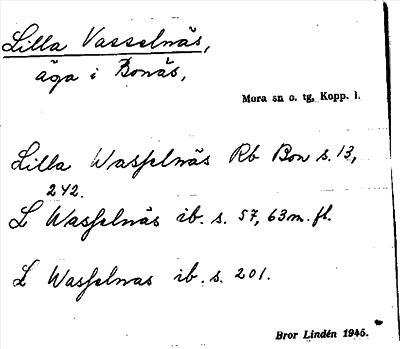 Lilla Vasselnäs,
äga i Bonäs,
Mora sn o. tg, Kopp. l.
Lilla Wasselnäs Rb Bon s. 13,
242.
L Wasselnäs ib. s. 57, 63 m. fl.
L Wasselnas ib. s. 201.
Bror Lindén 1945.